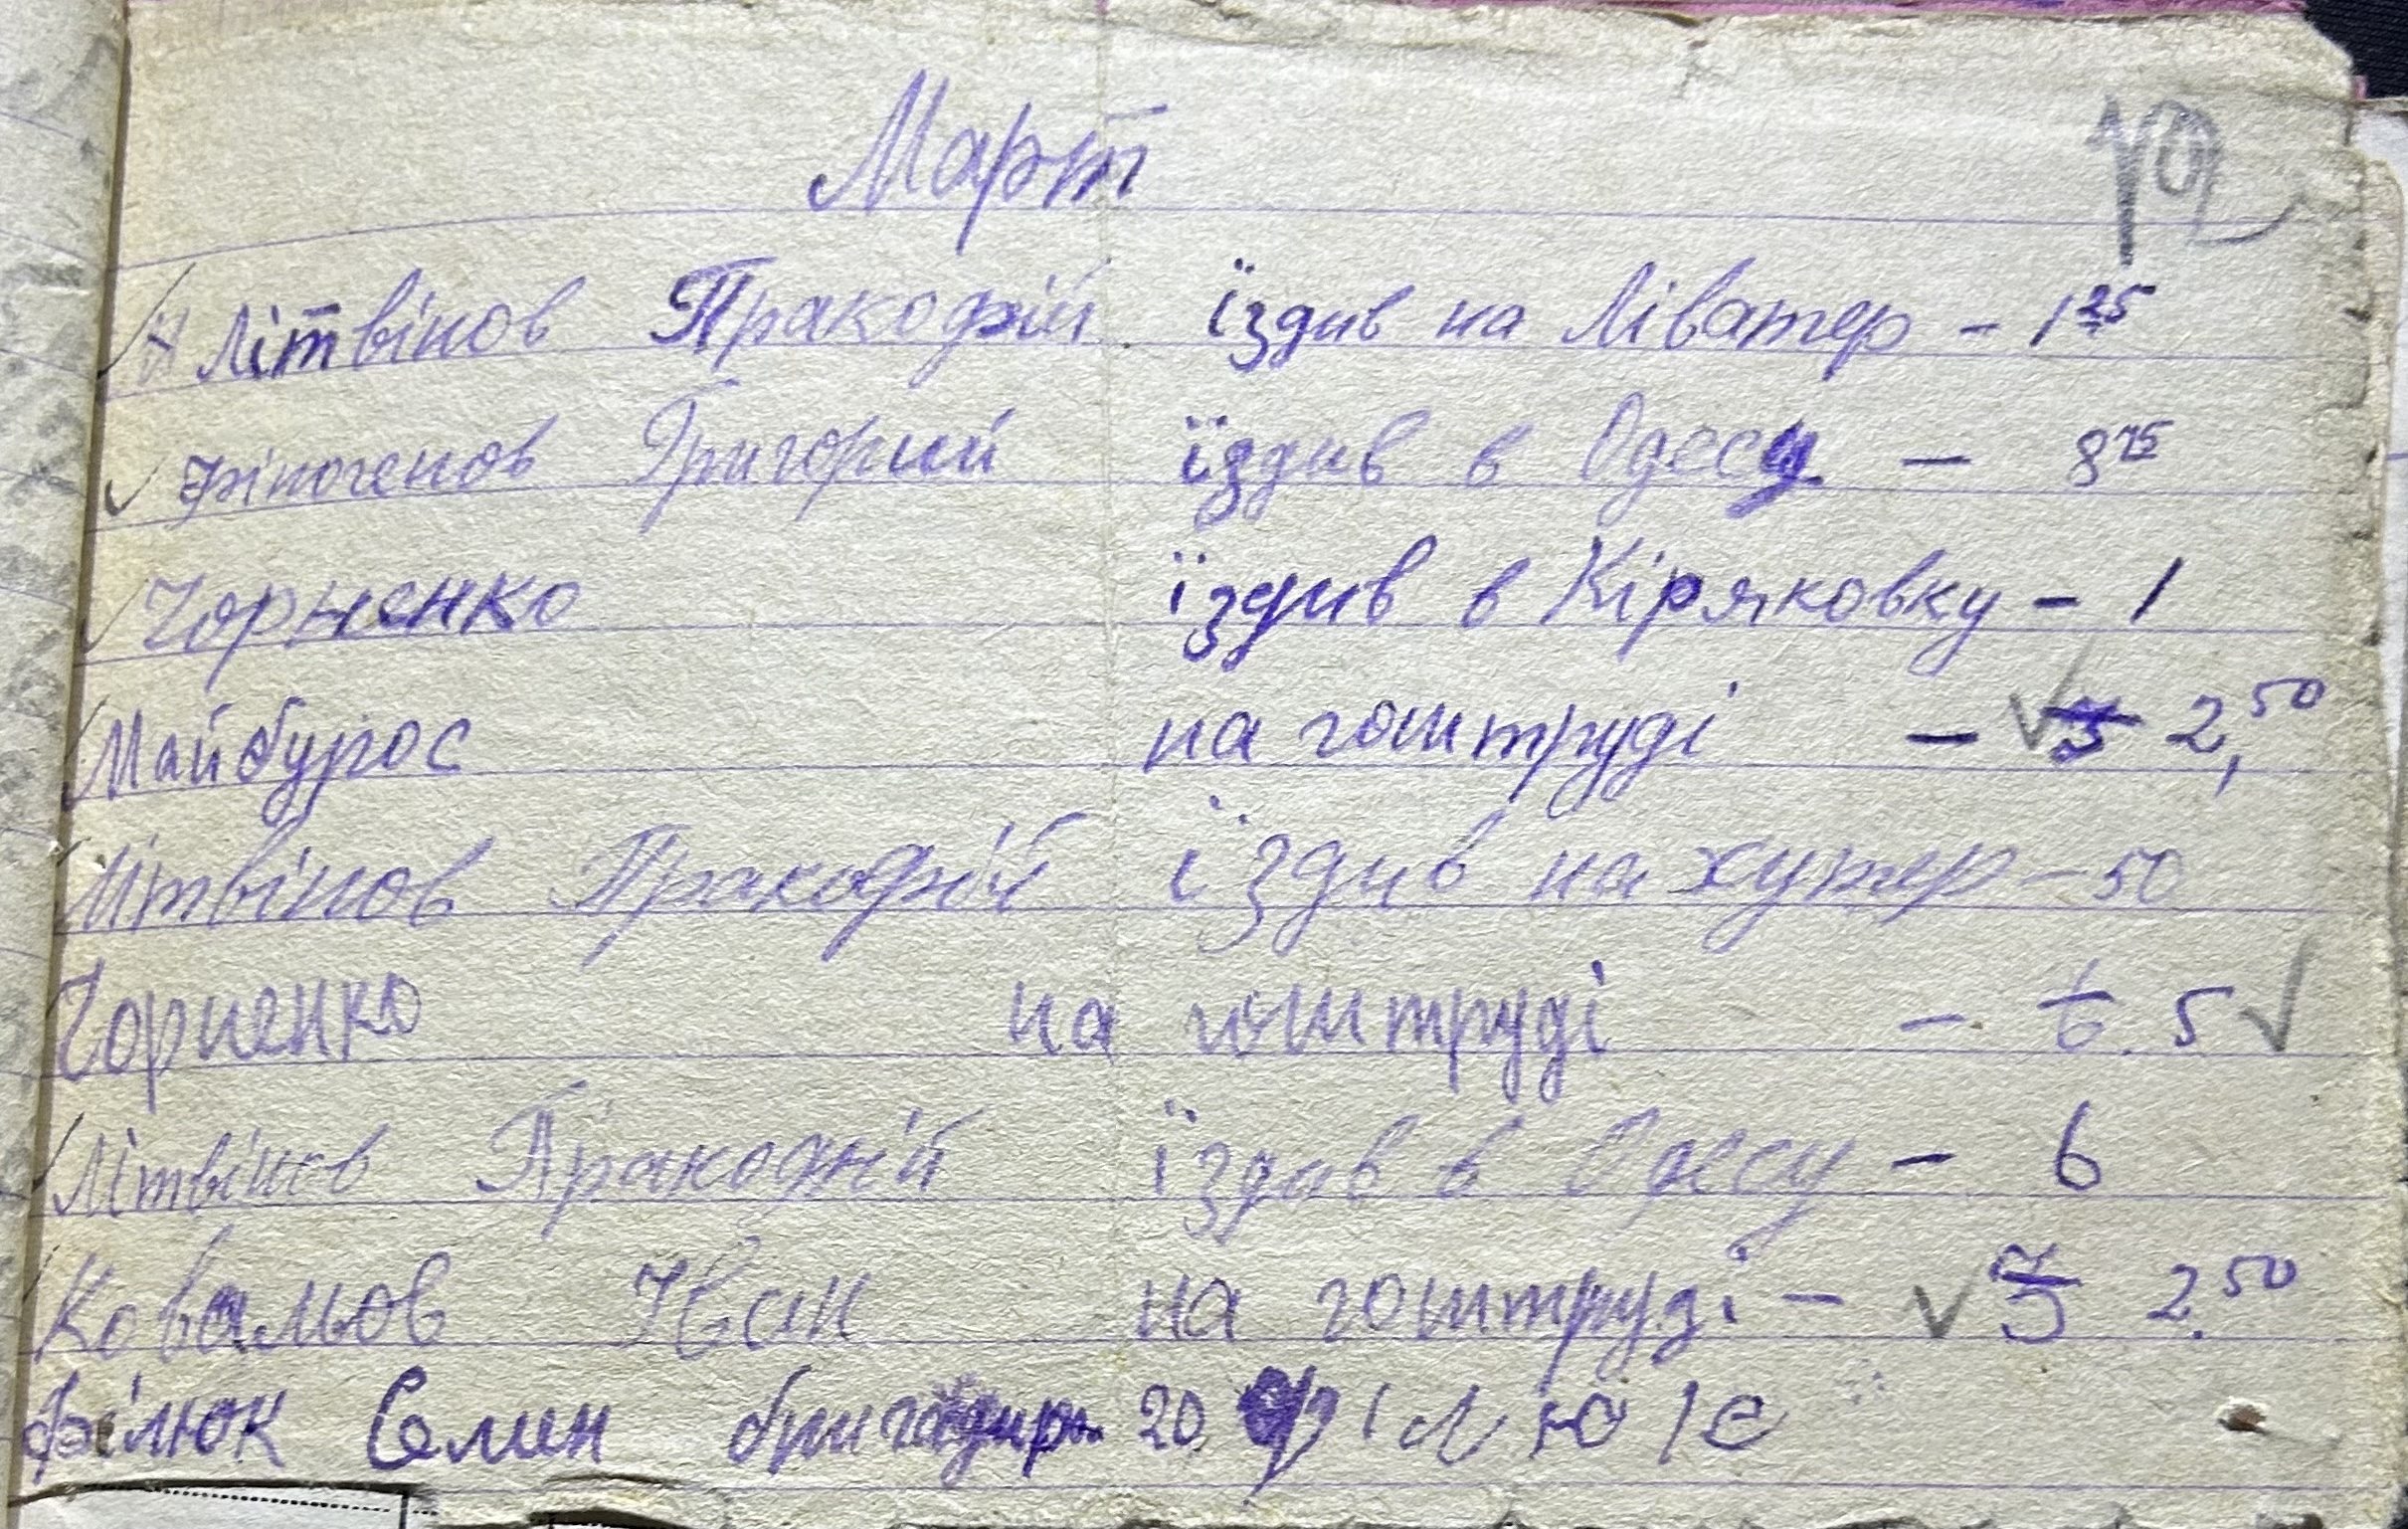 Март 10
Літвінов Пракофій їздив на Ліватер - 1 25
Фіногенов Григорий їздив в Одесу - 8 75
Чорненко їздив в Кіряковку - 1
Майбурос на гоштруді - 5 2,50
Літвінов Пракофій їздив на хутер - 50
Чорненко на гоштруді - 5
Літвінов Пракофій їздив в Одесу - 6
Ковальов Іван на гоштруді - 5 2.50
Філюк Семин бригадир 20